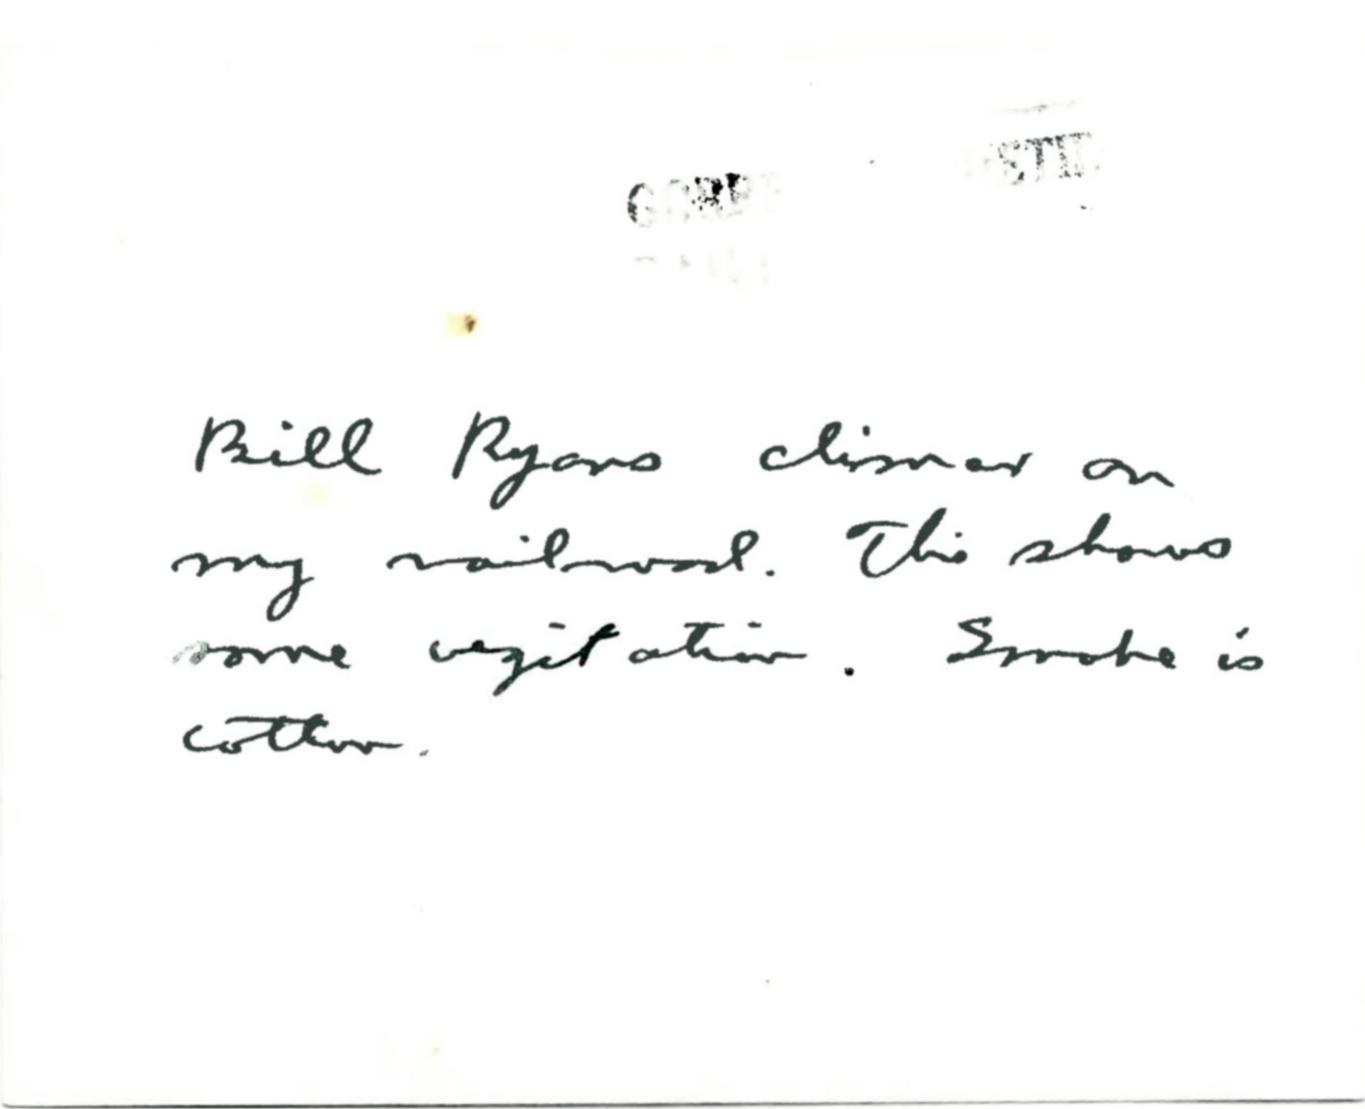 Bill Ryans climar on
my railroad. This shows
some vegitation. Smoke is
cotton.